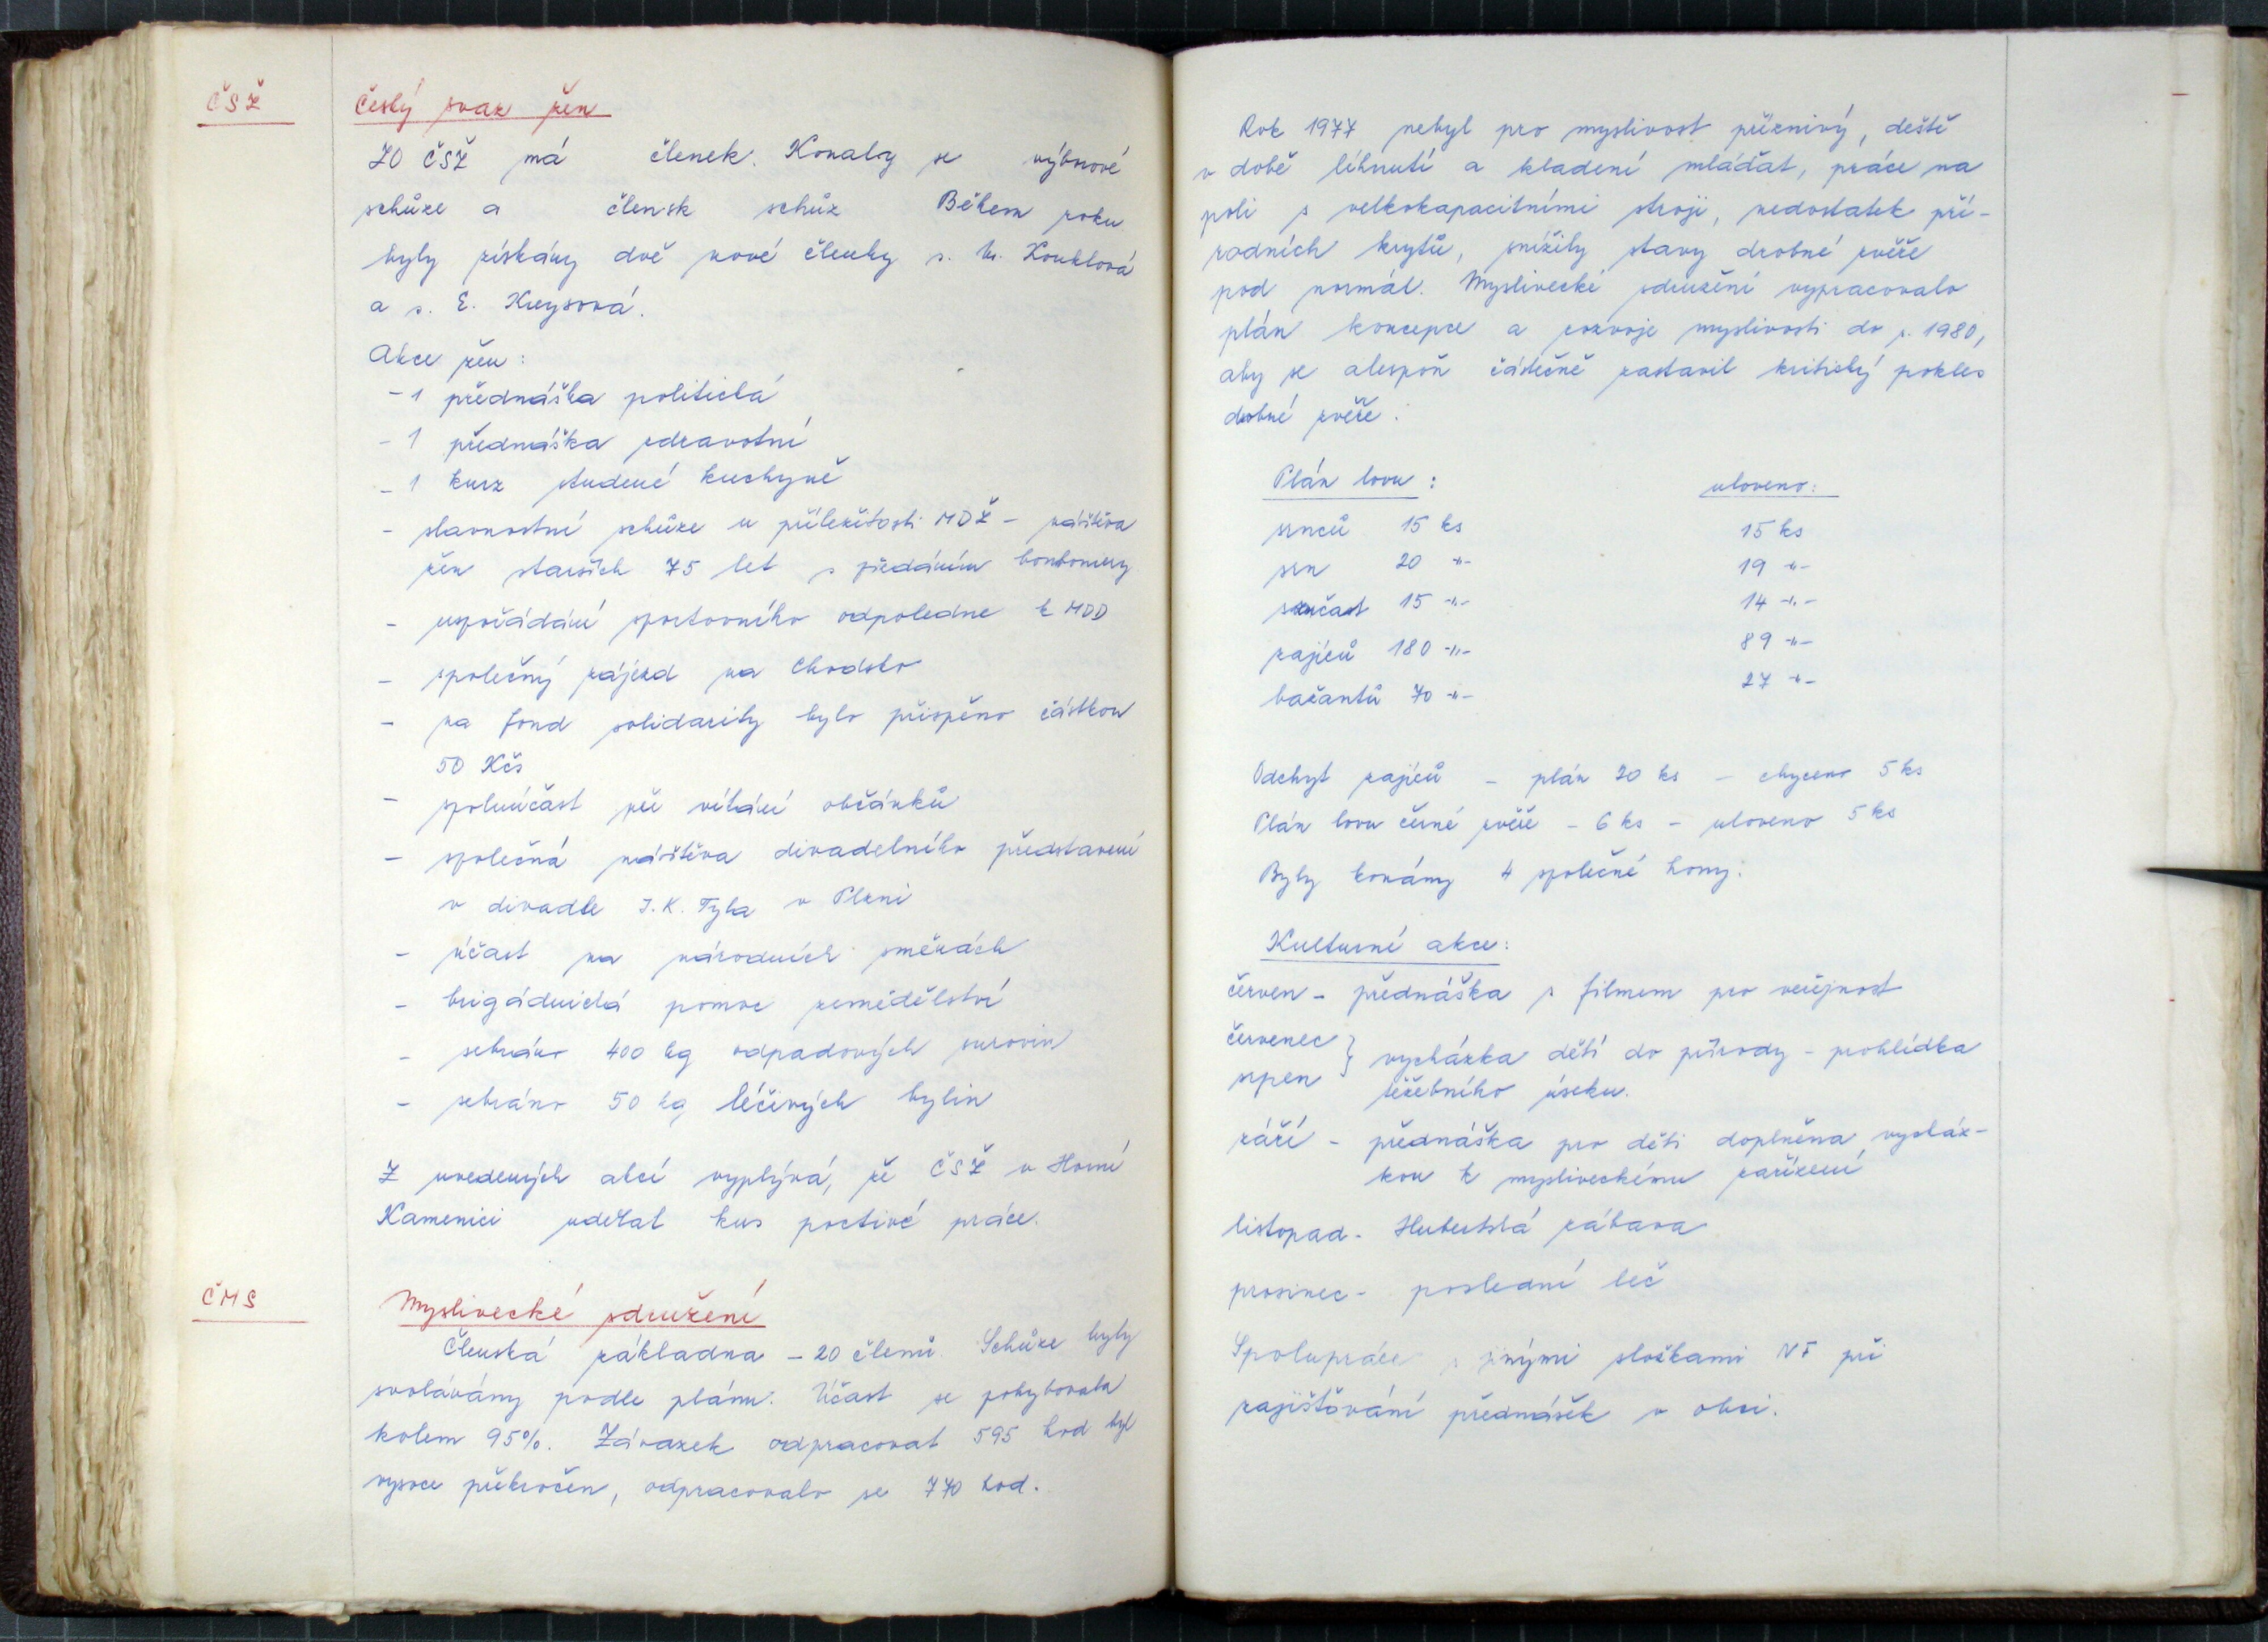 ČSŽ
Český svaz žen
ZO ČSŽ má členek. Konaly se výborové
schůze a člensk schůz Během roku
byly získány dvě nové členky s. M. Kouklová
a s. E. Kreysová.
Akce žen:
- 1 přednáška politická
- 1 přednáška zdravotní
- 1 kurz studené kuchyně
- slavnostní schůze u příležitosti MDŽ - návštěva
žen starších 75 let s předáním bonboniery
- uspořádání sportovního odpoledne k MDD
- společný zájezd na Chodsko
- na fond solidarity bylo přispěno částkou
50 Kčs
- spoluúčast při vítání občánků
- společná návštěva divadelního představení
v divadle J. K. Tyla v Plzni
- účast na národních směnách
- brigádnická pomoc zemědělství
- sebráno 400 kg odpadových surovin
- sebráno 50 kg léčivých bylin
Z uvedených akcí vyplývá, že ČSŽ v Horní
Kamenici udělal kus poctivé práce.
ČMS
Myslivecké sdružení
Členská základna - 20 členů. Schůze byly
svolávány podle plánu. Účast se pohybovala
kolem 95%. Závazek odpracovat 595 hod byl
vysoce překročen, odpracovalo se 770 hod.
Rok 1977 nebyl pro myslivost příznivý, deště
v době líhnutí a kladení mláďat, práce na
poli s velkokapacitními stroji, nedostatek pří-
rodních krytů, snížily stavy drobné zvěře
pod normál. Myslivecké sdružení vypracovalo
plán koncepce a rozvoje myslivosti do r. 1980,
aby se alespoň částečně zastavil kritický pokles
drobné zvěře.
Plán lovu: uloveno:
srnců 15 ks 15 ks
srn 20 -"- 19 -"-
srnčat 15 -"- 14 -"-
zajíců 180 -"- 89 -"-
bažantů 70 -"- 27 -"-
Odchyt zajíců - plán 20 ks - chyceno 5 ks
Plán lovu černé zvěře - 6 ks - uloveno 5 ks
Byly konány 4 společné hony.
Kulturní akce:
červen - přednáška s filmem pro veřejnost
červenec } vycházka dětí do přírody - prohlídka
srpen těžebního úseku.
září - přednáška pro děti doplněna vycház-
kou k mysliveckému zařízení
listopad - Hubertská zábava
prosinec - poslední leč
Spolupráce s jinými složkami NF při
zajišťování přednášek v obci.